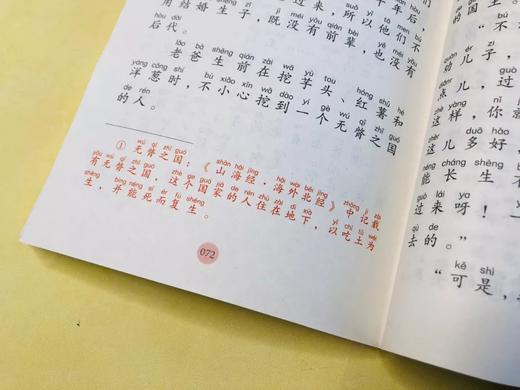 年后，
过来，所以他们不
用结婚生子，既没有前辈，也没有
后代。
老爸生前在挖芋头、红薯和
洋葱时，不小心挖到一个无臀之国
的人。
①无臀之国：《山海经·海外北经》中记载
有无臀之国，这个国家的人住在地下，以吃土为
生，并能死而复生。
072
的国
“不
劝儿子，
点儿，过
这样，你就
这儿多好，
能长生不
过来呀！一
去的。”
“可是，